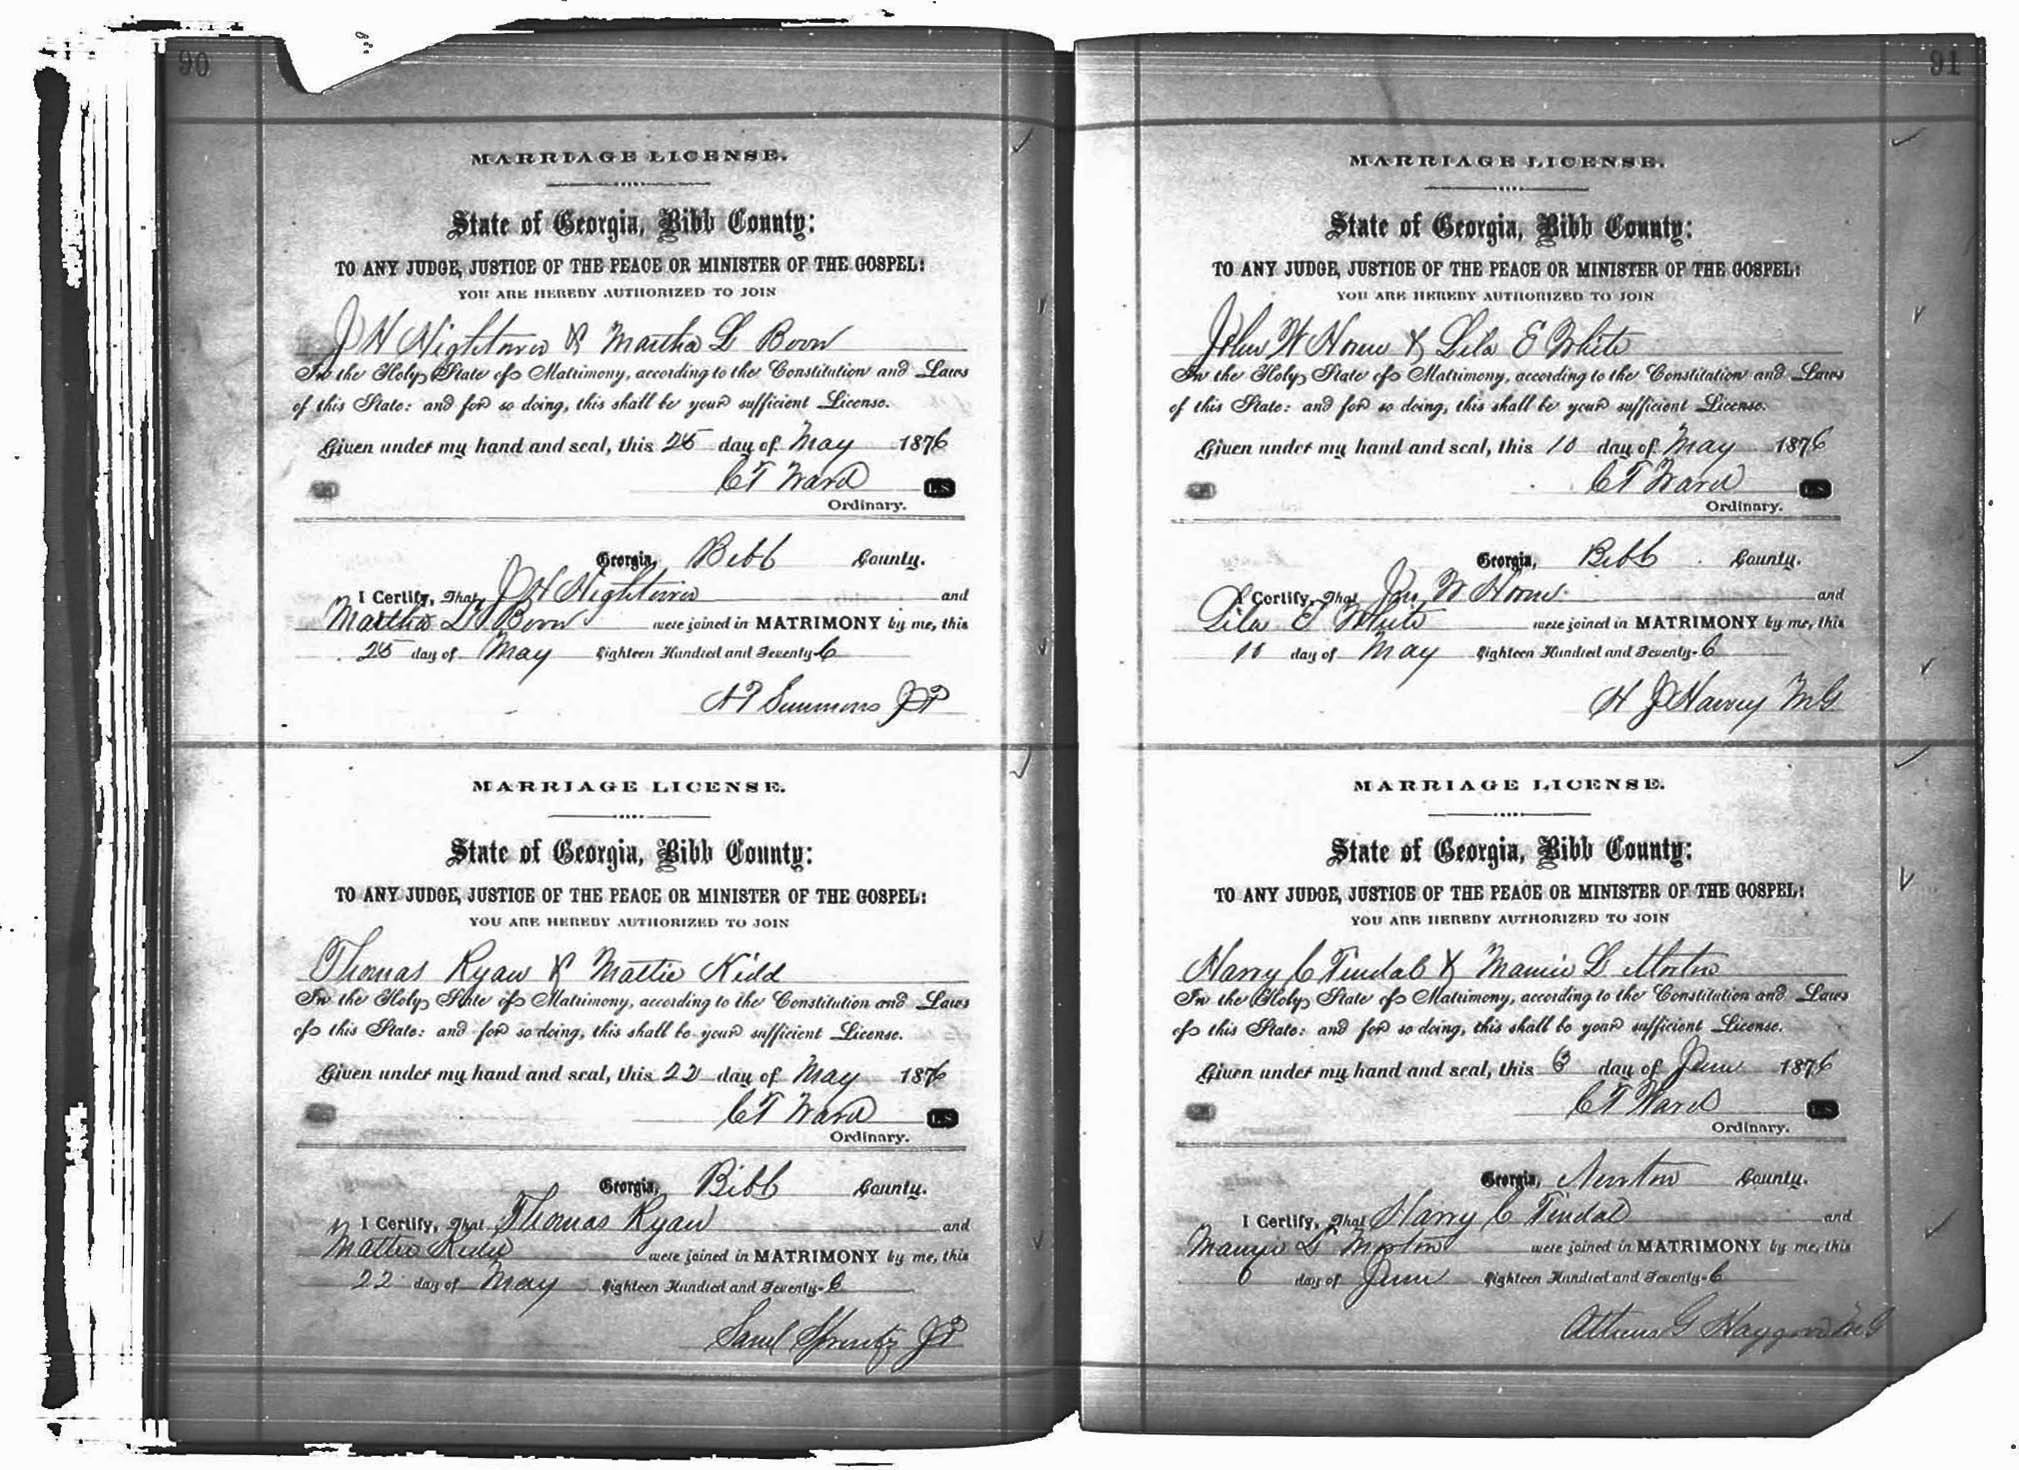 90
MARRIAGE LICENSE.
State of Georgia, Bibb County:
TO ANY JUDGE, JUSTICE OF THE PEACE OR MINISTER OF THE GOSPEL:
YOU ARE HEREBY AUTHORIZED TO JOIN
J H Hightower & Martha L Boon
In the Holy State of Matrimony, according to the Constitution and Laws
of this State: and for so doing, this shall be your sufficient License.
Given under my hand and seal, this 25 day of May 1876
C T Ward L.S.
Ordinary.
Georgia, Bibb County.
I Certify, That J H Hightower and
Martha L Boon were joined in MATRIMONY by me, this
25 day of May Eighteen Hundred and Seventy-6
Simmons J P
MARRIAGE LICENSE.
State of Georgia, Bibb County:
TO ANY JUDGE, JUSTICE OF THE PEACE OR MINISTER OF THE GOSPEL:
YOU ARE HEREBY AUTHORIZED TO JOIN
Thomas Ryan & Mattie Kidd
In the Holy State of Matrimony, according to the Constitution and Laws
of this State: and for so doing, this shall be your sufficient License.
Given under my hand and seal, this 22 day of May 1876
C T Ward L.S.
Ordinary.
Georgia, Bibb County.
I Certify, That Thomas Ryan and
Mattie Kidd were joined in MATRIMONY by me, this
22 day of May Eighteen Hundred and Seventy-6
Saml J P
91
MARRIAGE LICENSE.
State of Georgia, Bibb County:
TO ANY JUDGE, JUSTICE OF THE PEACE OR MINISTER OF THE GOSPEL:
YOU ARE HEREBY AUTHORIZED TO JOIN
John W Horne & Lila E White
In the Holy State of Matrimony, according to the Constitution and Laws
of this State: and for so doing, this shall be your sufficient License.
Given under my hand and seal, this 10 day of May 1876
C T Ward L.S.
Ordinary.
Georgia, Bibb County.
I Certify, That Jno W Horne and
Lila E White were joined in MATRIMONY by me, this
day of May Eighteen Hundred and Seventy-6
H J Harvey M G
MARRIAGE LICENSE.
State of Georgia, Bibb County:
TO ANY JUDGE, JUSTICE OF THE PEACE OR MINISTER OF THE GOSPEL:
YOU ARE HEREBY AUTHORIZED TO JOIN
Harry C Tindal & Mamie L Morton
In the Holy State of Matrimony, according to the Constitution and Laws
of this State: and for so doing, this shall be your sufficient License.
Given under my hand and seal, this day of June 1876
C T Ward L.S.
Ordinary.
Georgia, Newton County.
I Certify, That Harry C Tindal and
Mamie L Morton were joined in MATRIMONY by me, this
6 day of June Eighteen Hundred and Seventy-6
Atticus G Haygood M G